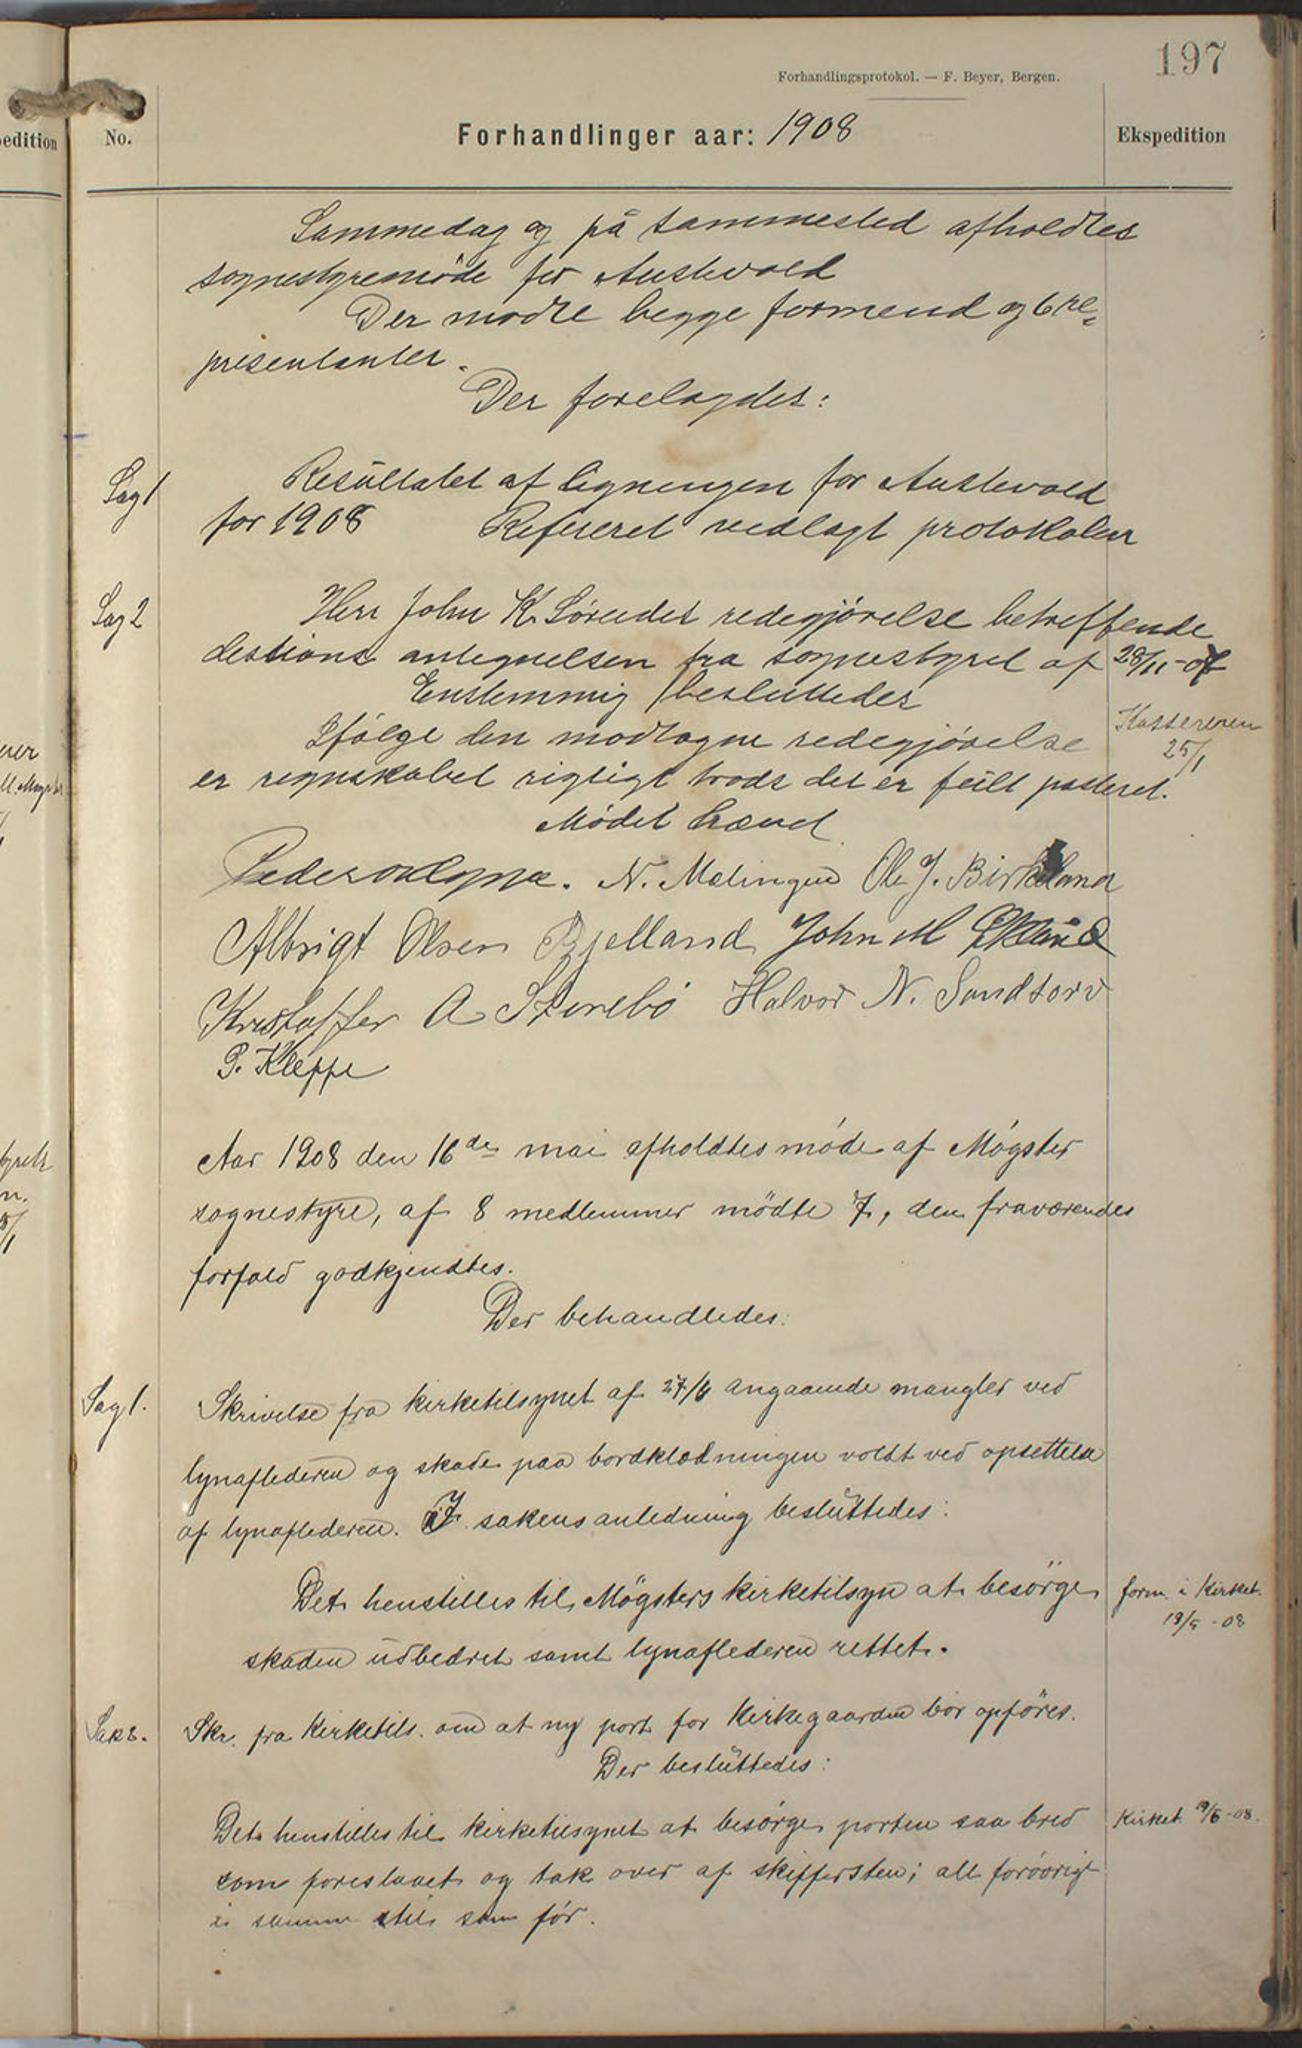 197
Forhandlingsprotokol. — F. Beyer, Bergen.
No.
Forhandlinger aar: 1908
Ekspedition
Sammedag og på sammested afholdtes
sognestyremöde for Austevold
Der mødte begge formend og 6 re-
presentanter.
Der forelagdes:
Sag 1
Resultatet af ligningen for Austevold
for 1908 Refereret vedlagt protokolen
Sag 2
Herr John K. Söreides redegjörelse betreffende
destions antegnelsen fra sognestyret af 28/11-07
Enstemmig besluttedes
Kassereren
25/1
Ifölge den modtagne redegjörelse
er regnskabet rigtigt trods det er feilt posteret.
Mödet hævet
N. Melingen Ole J. Birkeland
Albrigt Olsen Bjelland John M
Kristoffer A Stenebö Halvor N. Sandtorv
P. Kleppe
Aar 1908 den 16de mai afholdtes möde af Mögster
sognestyre, af 8 medlemmer mödte 7, den fraværendes
forfald godkjendtes.
Der behandledes:
Sag 1.
Skrivelse fra kirketilsynet af 27/4 angaaende mangler ved
lynaflederen og skade paa bordklædningen voldt ved opsettelse
af lynaflederen. I sakens anledning besluttedes:
Det henstilles til Mögsters kirketilsyn at besörge
form. i Kirket.
19/5 -08
skaden udbedret samt lynaflederen rettet.
Sak 2.
Skr. fra Kirketils. om at ny port for Kirkegaarden bör opföres.
Der besluttedes:
Det henstilles til kirketilsynet at besörge porten saa bred
Kirket. 19/5 -08.
som foreslaaet og tak over af skiffersten; alt forövrigt
i samme stil som för.